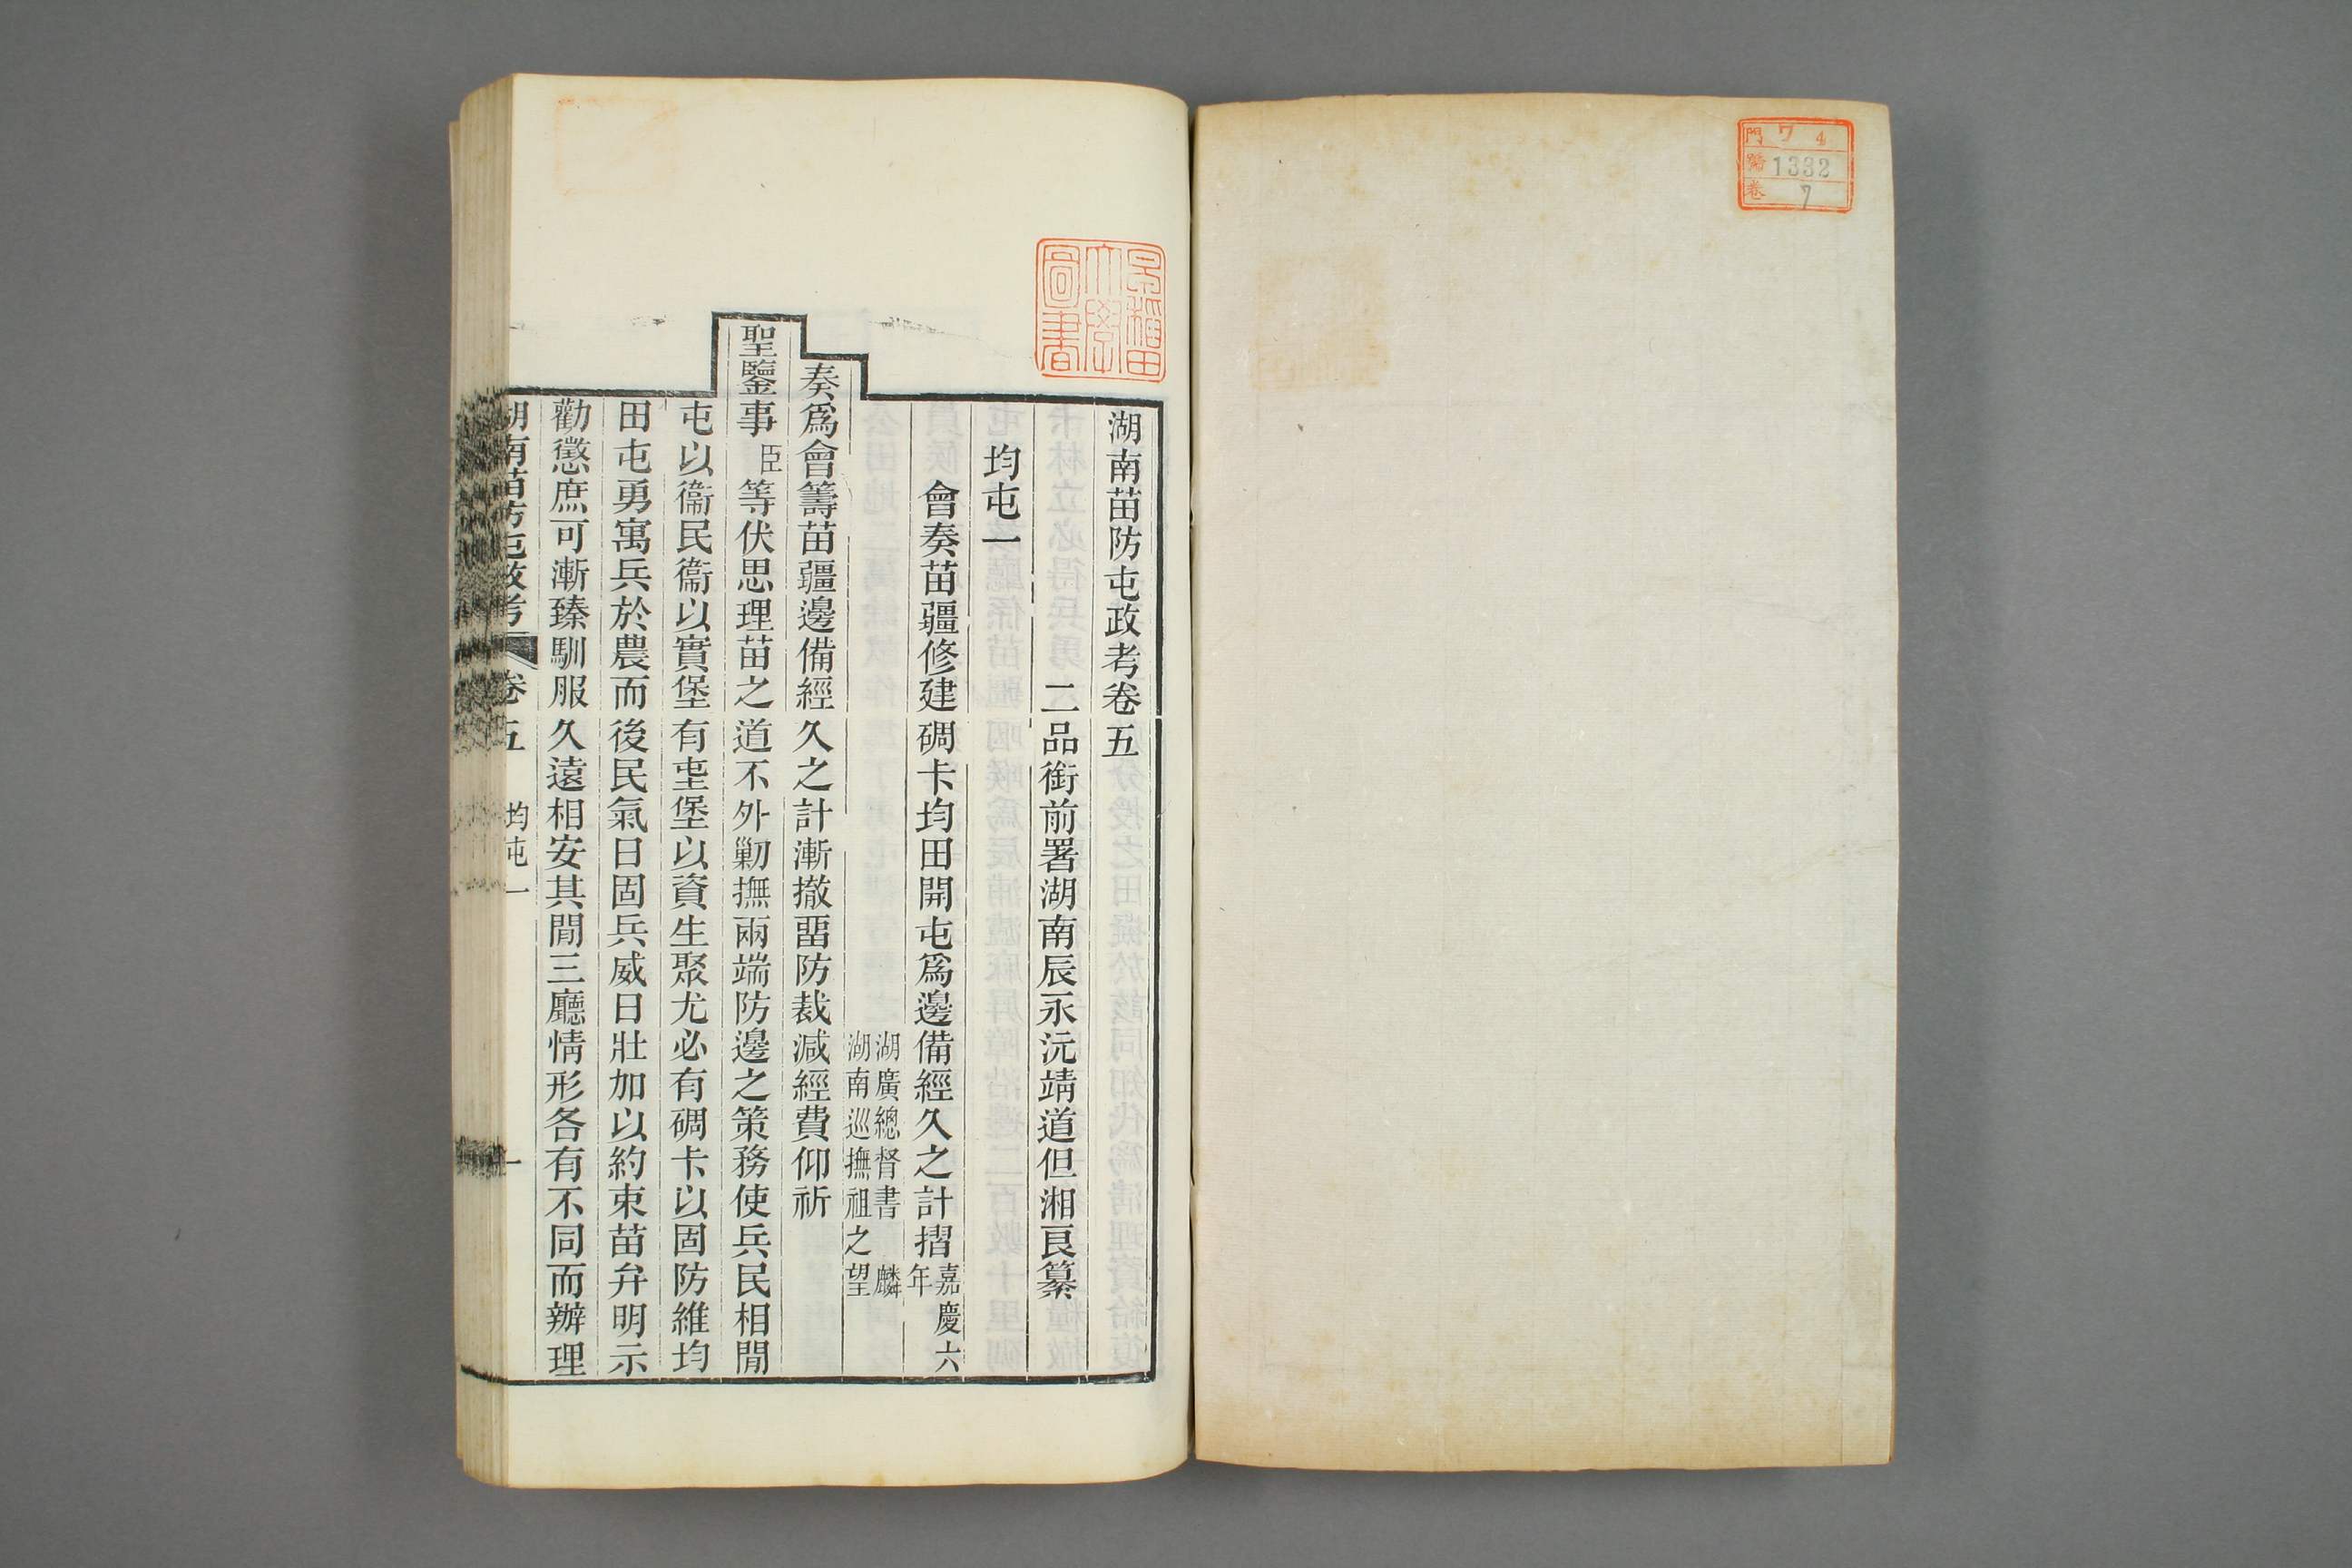 門 ワ 4
號 1332
卷 7
早稲田大學圖書
湖南苗防屯政考卷五
二品銜前署湖南辰永沅靖道但湘良纂
均屯一
會奏苗疆修建碉卡均田開屯爲邊備經久之計摺嘉慶六年
湖廣總督書麟
湖南巡撫祖之望
奏爲會籌苗疆邊備經久之計漸撤畱防裁減經費仰祈
聖鑒事臣等伏思理苗之道不外勦撫兩端防邊之策務使兵民相閒
屯以衞民衞以實堡有堡以資生聚尤必有碉卡以固防維均
田屯勇寓兵於農而後民氣日固兵威日壯加以約束苗弁明示
勸懲庶可漸臻馴服久遠相安其閒三廳情形各有不同而辦理
湖南苗防屯政考 卷五 均屯一 一